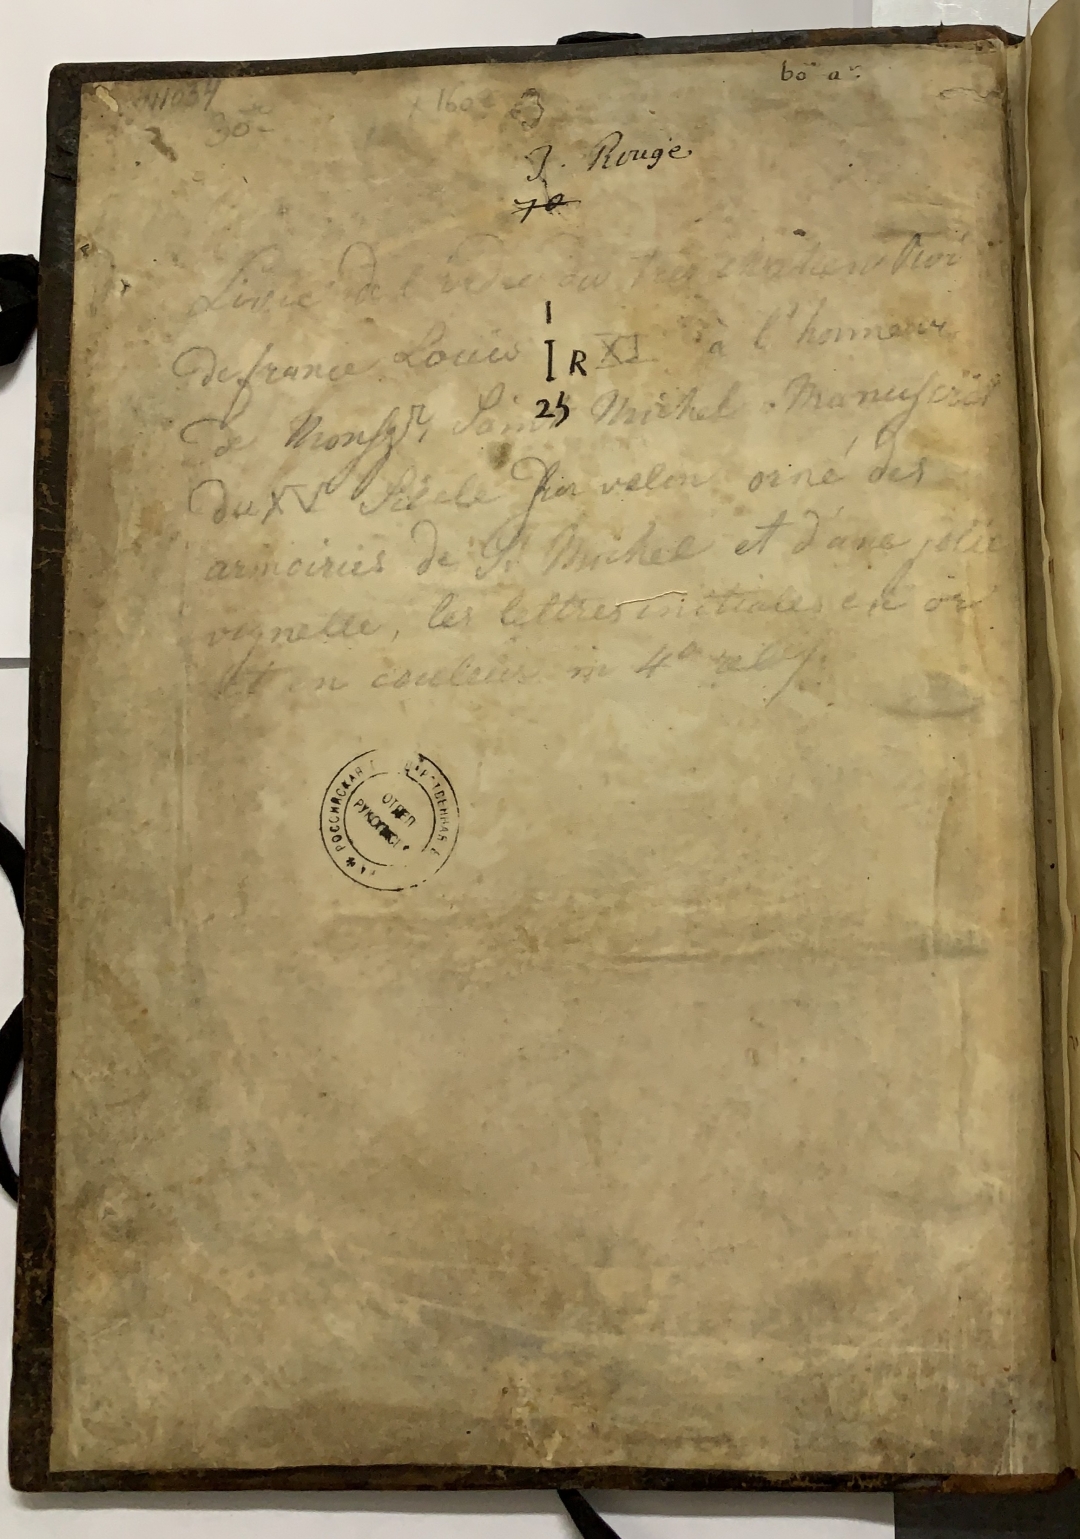 bo a
41034
30
160
3
J. Rouge
70
Livre de l'ordre du tres chretien Roi
I
de france Louis XI à l'honneur
I R
25
de Monsgr Saint Michel . Manuscrit
du XV Siècle sur velin orné des
armoiries de St Michel et d'une jolie
vignette, les lettres initiales en or
et en couleurs in 4°
РОССИЙСКАЯ
ОТДЕЛ
РУКОПИСЕЙ